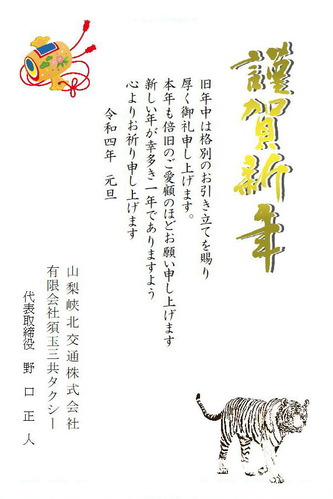 謹賀新年
旧年中は格別のお引き立てを賜り
厚く御礼申し上げます。
本年も倍旧のご愛顧のほどお願い申し上げます
新しい年が幸多き一年でありますよう
心よりお祈り申し上げます
令和四年 元旦
山梨峡北交通株式会社
有限会社須玉三共タクシー
代表取締役 野口正人